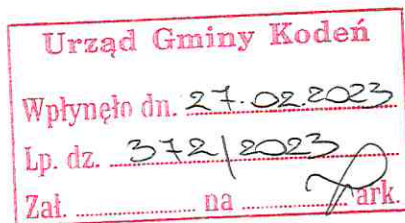 Urząd Gminy Kodeń
Wpłynęło dn. 27.02.2023
Lp. dz. 372/2023
Zał. .................. na .................. ark.